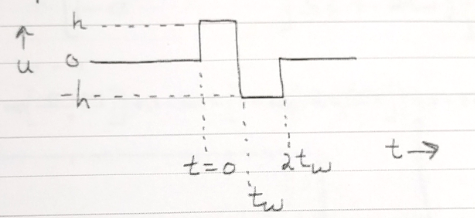 h
↑
u
0
-h
t=0
t_w
2t_w
t →